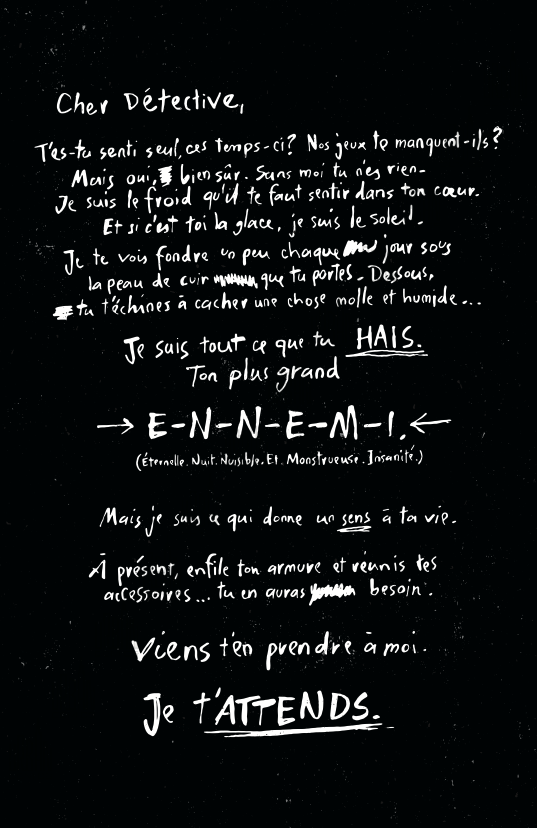 Cher Détective,
T'es-tu senti seul, ces temps-ci? Nos jeux te manquent-ils?
Mais oui, bien sûr. Sans moi tu n'es rien.
Je suis le froid qu'il te faut sentir dans ton cœur.
Et si c'est toi la glace, je suis le soleil.
Je te vois fondre un peu chaque jour sous
la peau de cuir que tu portes. Dessous,
tu t'échines à cacher une chose molle et humide...
Je suis tout ce que tu HAIS.
Ton plus grand
→ E-N-N-E-M-I. ←
(Éternelle. Nuit. Nuisible. Et. Monstrueuse. Insanité.)
Mais je suis ce qui donne un sens à ta vie.
À présent, enfile ton armure et réunis tes
accessoires... tu en auras besoin.
Viens t'en prendre à moi.
Je t'ATTENDS.